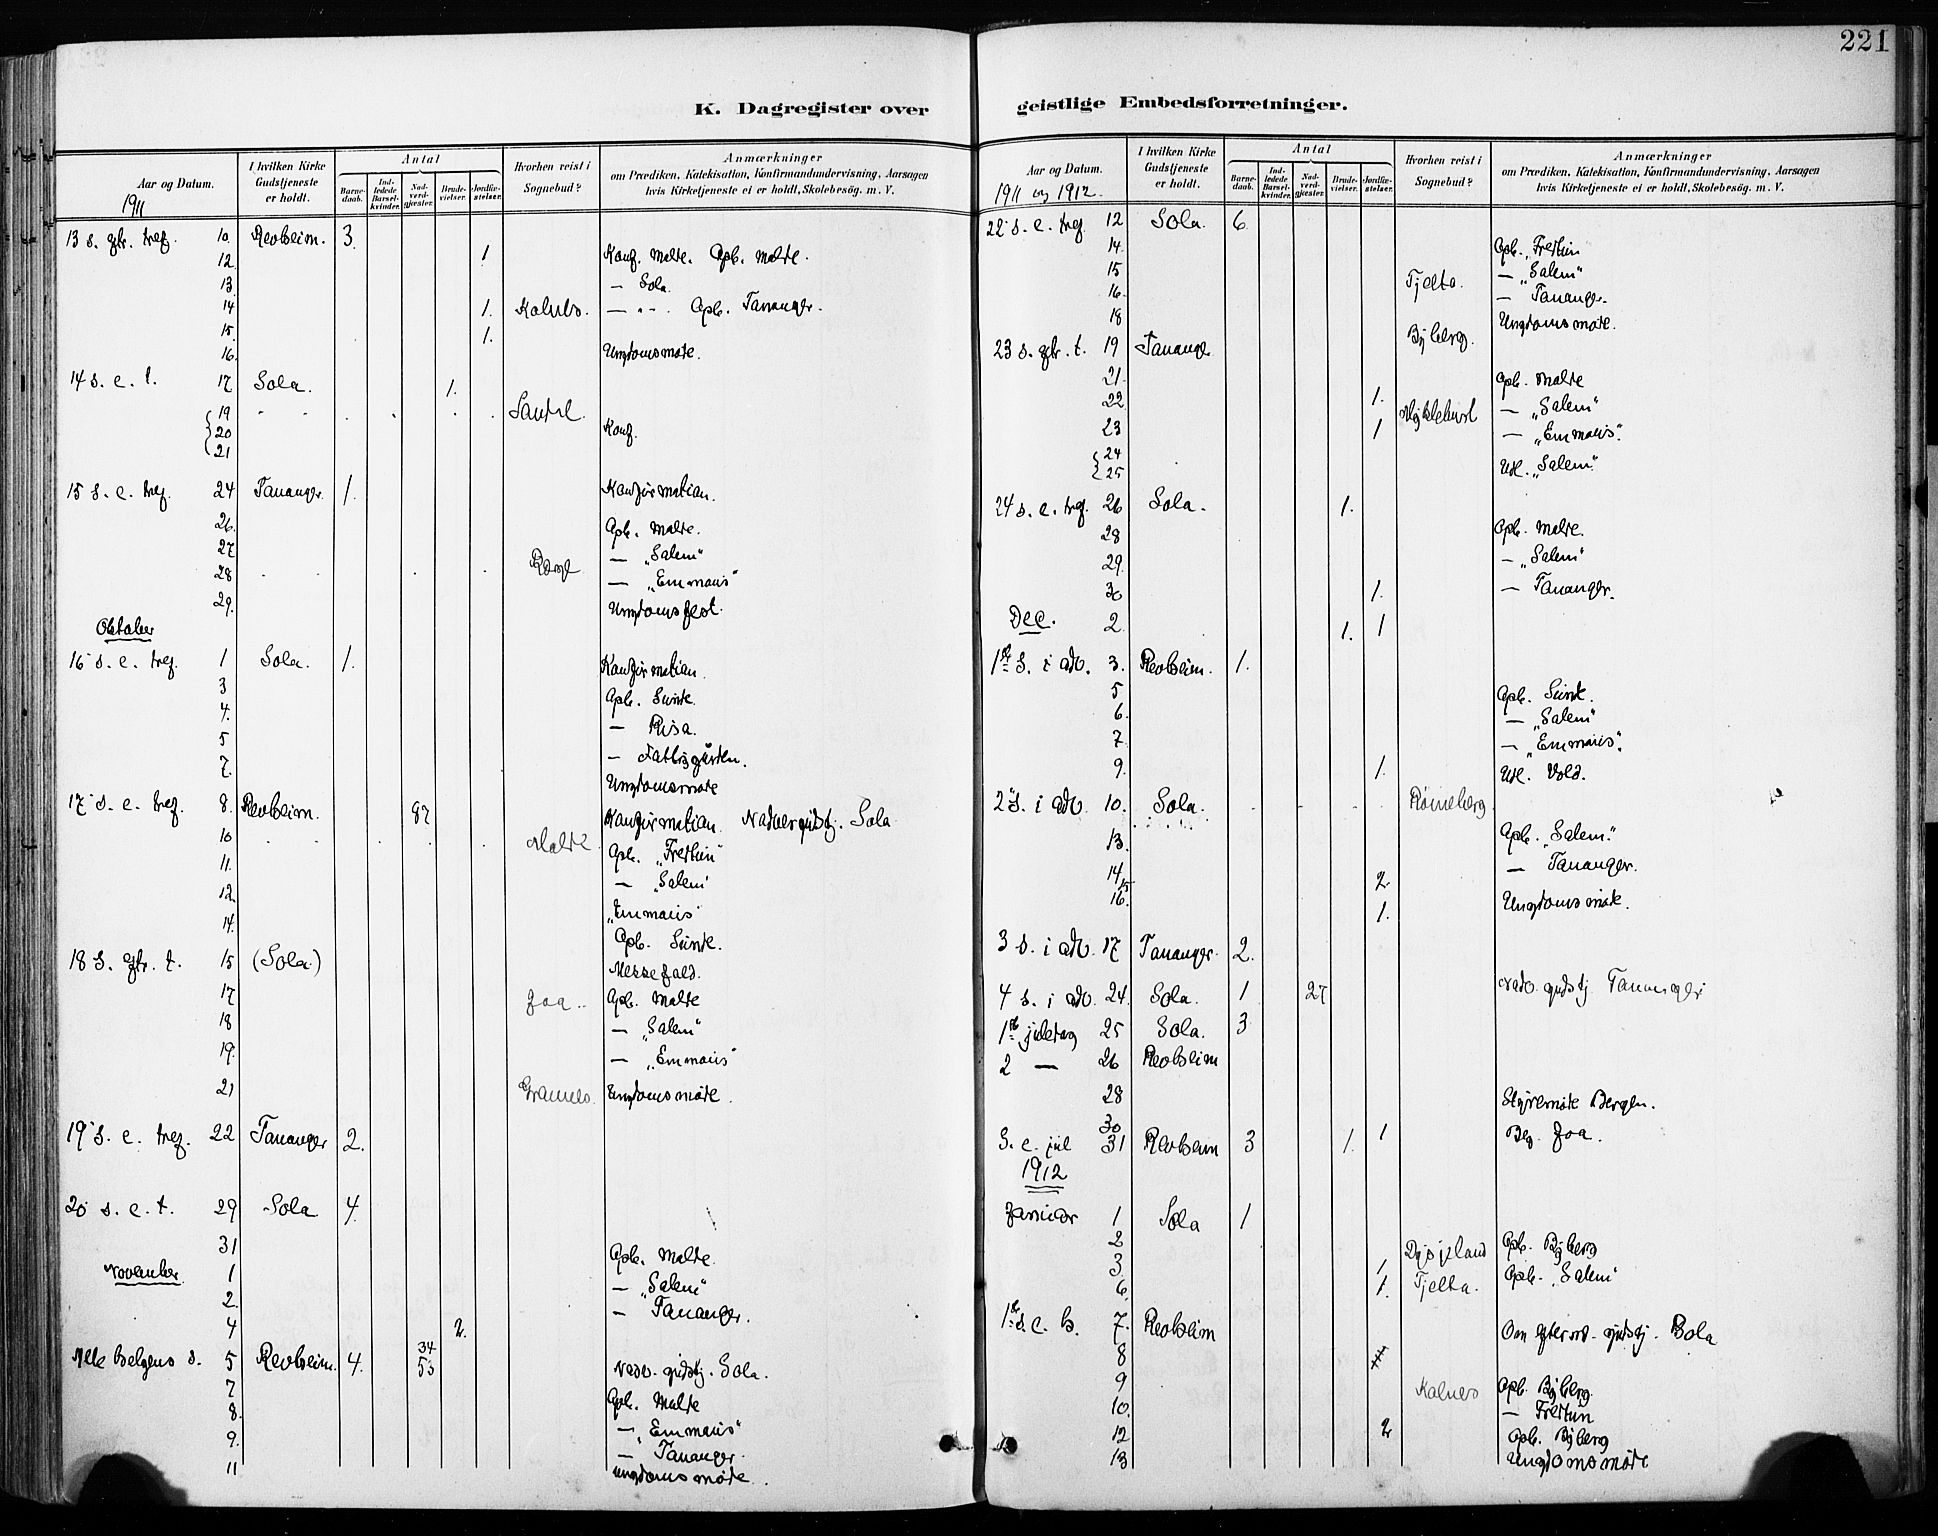 221
K. Dagregister over
Aar og Datum.
1911
I hvilken Kirke Gudstjeneste er holdt.
Antal
Barne-daab.
Ind-ledede Barsel-kvinder.
Nad-verd-gjester.
Brude-vielser.
Jordfæ-stelser.
Hvorhen reist i Sognebud?
Anmærkninger
om Prædiken, Katekisation, Konfirmandundervisning, Aarsagen
hvis Kirketjeneste ei er holdt, Skolebesøg. m. V.
13 s. eftr. tref. 10. Revheim. 3.
12. 1 Konf. Malde. Opb. Malde.
13. — Sola.
14 1. Kolnes. — „ - Opb. Tananger.
15. 1.
16. Ungdomsmøte.
14 s. e. t. 17 Sola. 1.
19 Sande.
20 Konf.
21
15 s. e. tref. 24 Tananger. 1. Konfirmation.
26. Opb. Malde.
27 — „Salem"
28 — „Emmaus"
29. Ungdomsfest.
Oktober
16 s. e. tref. 1 Sola. 1. Konfirmation.
3 Opb. Sunde.
4. — Risa.
5 — Fattiggården.
7. Ungdomsmøte
17 s. e. tref. 8. Revheim. 87 Konfirmation. Nadvergudstj. Sola
10 Malde. Opb. „Fredtun"
11. — „Salem"
12. „Emmaus"
14. Opb. Sunde.
18 s. eftr. t. 15 (Sola.) Messefald.
17 Joa. Opb. Malde
18 — „Salem"
19. — „Emmaus"
21 Grannes. Ungdomsmøte.
19 s. e. tref. 22 Tananger 2.
20 s. e. t. 29 Sola 4.
31 Opb. Malde.
November 1 — „Salem"
2. — Tananger.
4 2.
Alle helgens s. 5 Revheim. 4. 34 53 Nadv. gudstj. Sola.
7 Opb. Malde
8. — „Emmaus"
9. — Tananger.
11 Ungdomsmøte.
geistlige Embedsforretninger.
Aar og Datum.
1911 og 1912.
I hvilken Kirke Gudstjeneste er holdt.
Antal
Barne-daab.
Ind-ledede Barsel-kvinder.
Nad-verd-gjester.
Brude-vielser.
Jordfæ-stelser.
Hvorhen reist i Sognebud?
Anmærkninger
om Prædiken, Katekisation, Konfirmandundervisning, Aarsagen
hvis Kirketjeneste ei er holdt, Skolebesøg. m. V.
22 s. e. tref 12 Sola. 6.
14. Opb. „Fredtun
15 Tjelta. — „Salem"
16. — Tananger.
18 Ungdomsmøte.
23 s. eftr. t. 19 Tananger Byberg.
21. Opb. Malde
22 1. Myklebust — „Salem"
23 1 — „Emmaus".
24
25 Udl. „Salem".
24 s. e. tref. 26 Sola. 1.
28 Opb. Malde.
29. — „Salem"
30 1. — Tananger.
Dec. 2 1. 1
1ste s. i adv. 3. Revheim. 1.
5 Opb. Sunde.
6. — „Salem"
7. — „Emmaus".
9. 1. Udl. Vold.
2 s. i adv. 10. Sola. Røineberg.
13. Opb. „Salem".
14 2 — Tananger.
15
16. 1. Ungdomsmøte.
3 s. i adv. 17 Tananger. 2.
4 s. i adv. 24. Sola. 1 27 Nadv. gudstj. Tananger
1ste juledag 25 Sola. 3
2 — 26 Revheim
28 Styremøte Bergen.
30 1 Joa.
S. e. jul 31 Revheim 3 1.
1912
Januar 1 Sola 1
2 Dysjeland Opb. Byberg
3. 1 Opb. „Salem"
6. 1. Tjelta.
1ste s. e. h. 7. Revheim gudstj. Sola
8
9 Kolnes Opb. Byberg.
10. — Fredtun
12 2 Opb. Byberg
13 Ungdomsmøte